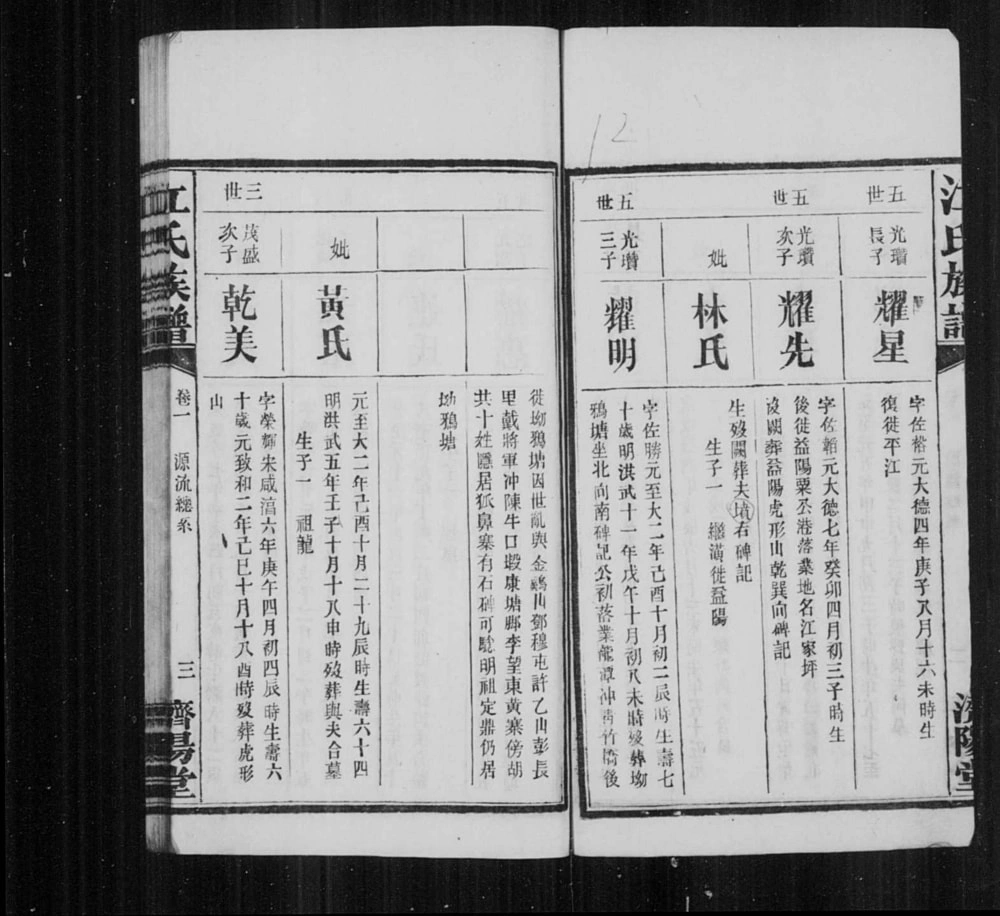 12
江氏族譜
濟陽堂
五世
光瓚長子
耀星
字佐裕元大德四年庚子八月十六未時生
復徙平江
五世
光瓚次子
耀先
字佐韜元大德七年癸卯四月初三子時生
後徙益陽粟公港落業地名江家坪
歿闕葬益陽虎形山乾巽向碑記
妣
林氏
生歿闕葬夫墳右碑記
生子一 繼漢徙益陽
五世
光瓚三子
耀明
字佐勝元至大二年己酉十月初二辰時生壽七
十歲明洪武十一年戊午十月初八未時歿葬坳
鴉塘坐北向南碑記公初落業龍潭沖靑竹橋後
徙坳鴉塘因世亂與金鷄山鄧穆屯許乙山彭長
里戴將軍沖陳牛口塅康塘鄜李望東黃寨傍胡
共十姓隱居狐鼻寨有石碑可騐明祖定鼎仍居
坳鴉塘
妣
黃氏
元至大二年己酉十月二十九辰時生壽六十四
明洪武五年壬子十月十八申時歿葬與夫合墓
生子一 祖龍
三世
茂盛次子
乾美
字榮輝宋咸淳六年庚午四月初四辰時生壽六
十歲元致和二年己巳十月十八酉時歿葬虎形
山
江氏族譜
卷一 源流總系
三
濟陽堂